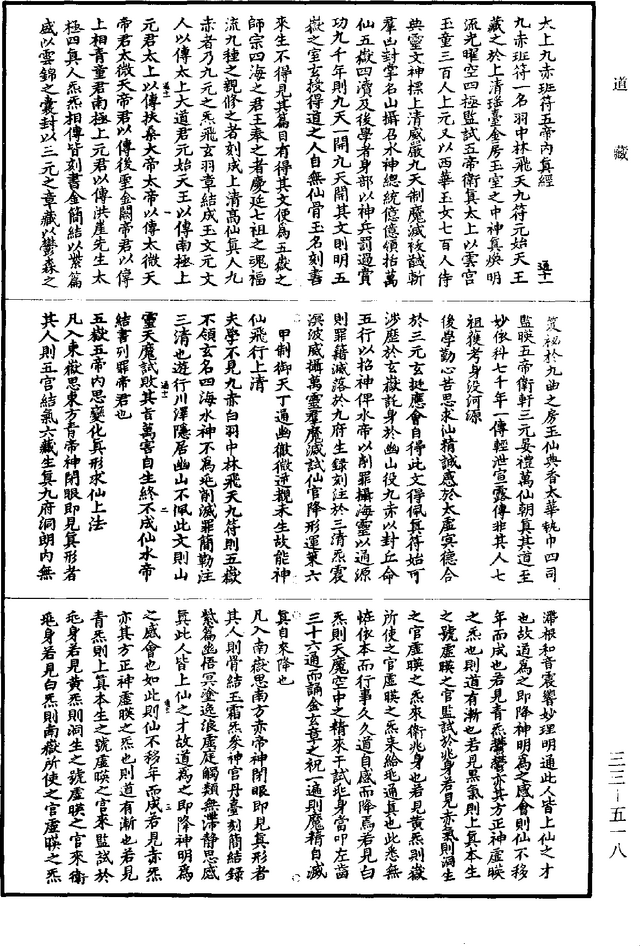 道藏
大上九赤班符五帝內真經
九赤班符一名羽中林飛天九符元始天王
藏之於上清瑤臺金房玉室之中神真煥明
流光曜空四極監試五帝衛真太上以雲宮
玉童三百人上元又以西華玉女七百人侍
典靈文神標上清威嚴九天制魔滅祅馘斬
羣凶封掌名山攝召水神總統億億領括萬
仙五嶽四瀆及後學者身部以神兵罰過賞
功九千年則九天一開九天開其文則明五
嶽之室玄授得道之人自無仙骨玉名刻書
來生不得見其篇目有得其文便為五嶽之
師宗四海之君王奉之者慶延七祖之魂福
流九種之親修之者刻成上清高仙真人九
赤者乃九元之炁飛玄羽章結成玉文元文
人以傳太上大道君元始天王以傳南極上
元君太上以傳扶桑大帝太帝以傳太微天
帝君太微天帝君以傳後聖金闕帝君以傳
上相青童君南極上元君以傳洪崖先生太
極四真人炁炁相傳皆刻書金簡結以紫篇
盛以雲錦之囊封以三元之章藏以鬱森之
笈祕於九曲之房玉仙典香太華執巾四司
監暎五帝衛軒三元晏禮萬仙朝真其道至
妙依科七千年一傳輕泄宣露傳非其人七
祖獲考身沒河源
後學勤心苦思求仙精誠感於太虛冥德合
於三元玄挺應會自得此文得佩真符始可
涉歷於玄嶽託身於幽山役九赤以封丘命
五行以招神俾水帝以削罪攝海靈以通源
則罪籍滅落於九府生錄刻注於三清炁震
波威攝萬靈羣魔滅試仙官降形運策六
甲制御天丁通幽徹微逆觀未生故能神
仙飛行上清
夫學不見九赤白羽中林飛天九符則五嶽
不領玄名四海水神不為兆削滅罪簡勒注
三清也遊行川澤隱居幽山不佩此文則山
靈天魔試敗其旨萬害自生終不成仙水帝
結書列罪帝君也
五嶽五帝內思變化真形求仙上法
凡入東嶽思東方青帝神閉眼即見真形者
其人則五宮結氣六藏生真九府洞朗內無
滯根和音震響妙理明通此人皆上仙之才
也故道為之即降神明為之感會則仙不移
年而成也若見青炁鬱鬱亦其方正神虛暎
之炁也則道有漸也若見黑氣則上真本生
之號虛暎之官監試於兆身若見赤氣則洞生
之官虛暎之炁來衛兆身也若見黃炁則嶽
所使之官虛暎之炁來給兆通真也此悉無
恠依本而行事久久道自感而降焉若見白
炁則天魔空中之精來干試兆身當叩左齒
三十六通而誦金玄章之祝一遍則魔精自滅
真自來降也
凡入南嶽思南方赤帝神閉眼即見真形者
其人則骨結玉霜炁參神官丹臺刻簡結錄
紫篇幽悟冥塗逸浪虛庭觸類無滯靜思感
真此人皆上仙之才故道為之即降神明為
之感會也如此則仙不移年而成若見赤炁
亦其方正神虛暎之炁也則道有漸也若見
青炁則上真本生之號虛暎之官來監試於
兆身若見黃炁則洞生之號虛暎之官來衛
兆身若見白炁則南嶽所使之官虛暎之炁
三三—五一八